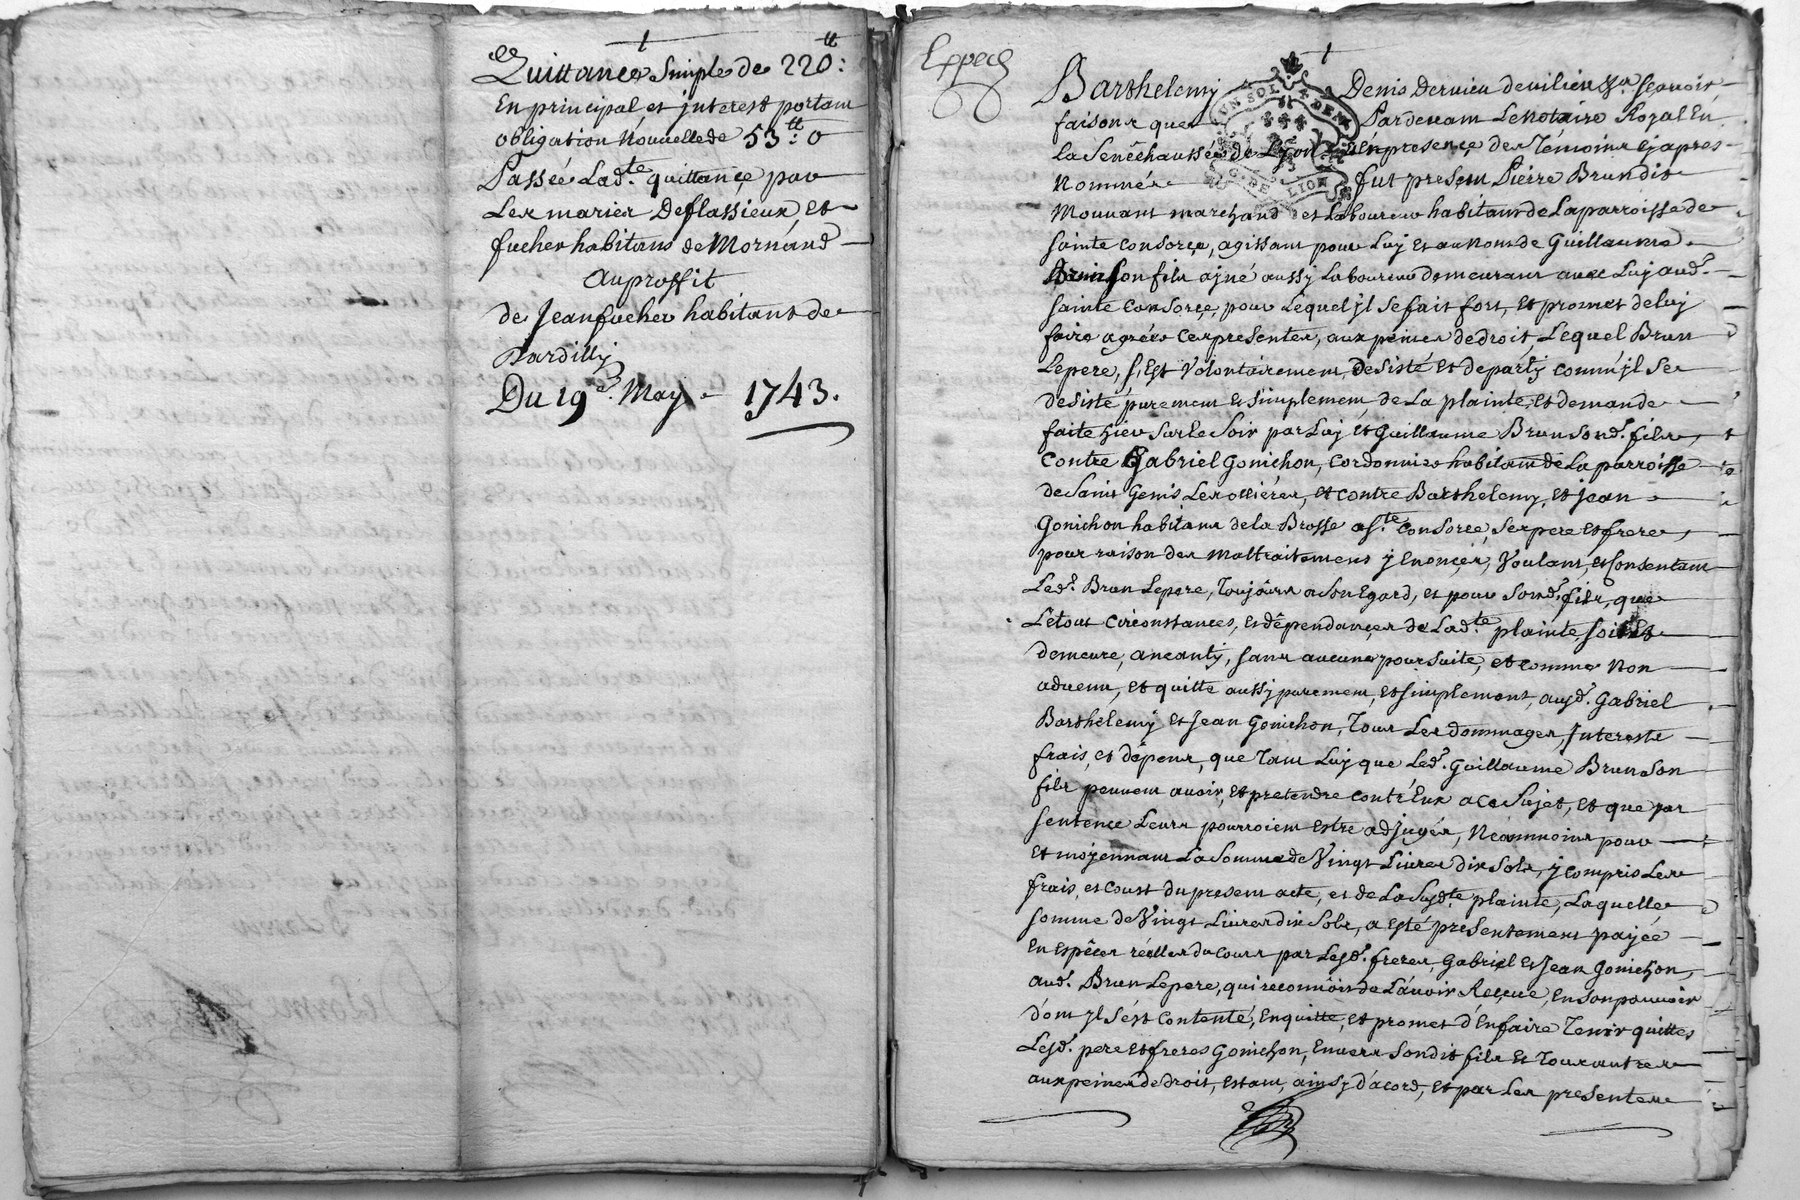 Quittance Simple de 220:tt
En principal et jnterest portant
obligation Nouvelle de 53:tt 0
Passée Lad.te quittançe par
Les mariés Deflassieux, et
fucher habitans de Mornand
auproffit
de Jean fucher habitant de
Dardilly
Du 19e. May - 1743.
Exped
Barthelemy Denis Dervieu devilieu sçavoir
faisons que Pardevam Le Notaire Royal En
La Senêchaussée de Lyon En presençe des Témoins Cyapres
Nommés fut present Pierre Brun dit
UN SOL 4 DEN
G. DE LION
Mouvant marchand et Laboureur habitant de La parroisse de
sainte Consorçe, agissant pour Luy et au Nom de Guillaume
Brun son fils ajné aussy Laboureur demeurant avec Luy aud.
sainte Consorçe, pour Lequel jl se fait fort, et promet de luy
faire agréer Ces presentes, aux peines de droit, Lequel Brun
Le pere, s'est Volontairement desisté et départy comm'jl se
desiste purement et simplement de La plainte, et demande
faite hier sur le Soir par Luy et Guillaume Brun Sond. fils,
contre Gabriel Gonichon, Cordonnier habitant de La parroisse
de Saint Genis Les ollières, et contre Barthelemy, et jean
Gonichon habitans de la Brosse a S.te Consorce, Ses pere et frere,
pour raison des maltraitemens y Enonçés, Voulant, et Consentant
Led. Brun Le pere, Toujours a Son Egard, et pour Sond. fils, que
Le tout Circonstances, et dêpendançes de Lad.te plainte, soit et
demeure, aneanty, sans aucune poursuite, et comme Non
advenu, et quitte aussy purement, et simplement, ausd. Gabriel
Barthelemy et Jean Gonichon, Tous Les dommages, Jnterests
frais, et dépens, que Tant Luy que Led. Guillaume Brun Son
fils peuvent avoir, et pretendre contr'Eux a Ce Sujet, et que par
sentence Leurs pourroient estre adjugés, Néanmoins pour
Et moyennant La Somme de Vingt Livres dix Sols, y compris Les
frais, et Coust du present acte, et de La Susd.te plainte, Laquelle
somme de Vingt Livres dix Sols, a esté presentement payée
En espêces réelles du Cours par Lesd. freres, Gabriel et Jean Gonichon,
aud. Brun Le pere, qui reconnoist de L'avoir Reçeue, En son pouvoir
dont jl s'est contenté, En quitte, et promet d'En faire Tenir quittes
Lesd. pere et freres Gonichon, Envers Sondit fils et Tous autres
aux peines de droit, Estant, ainsy d'acord, et par Les presentes